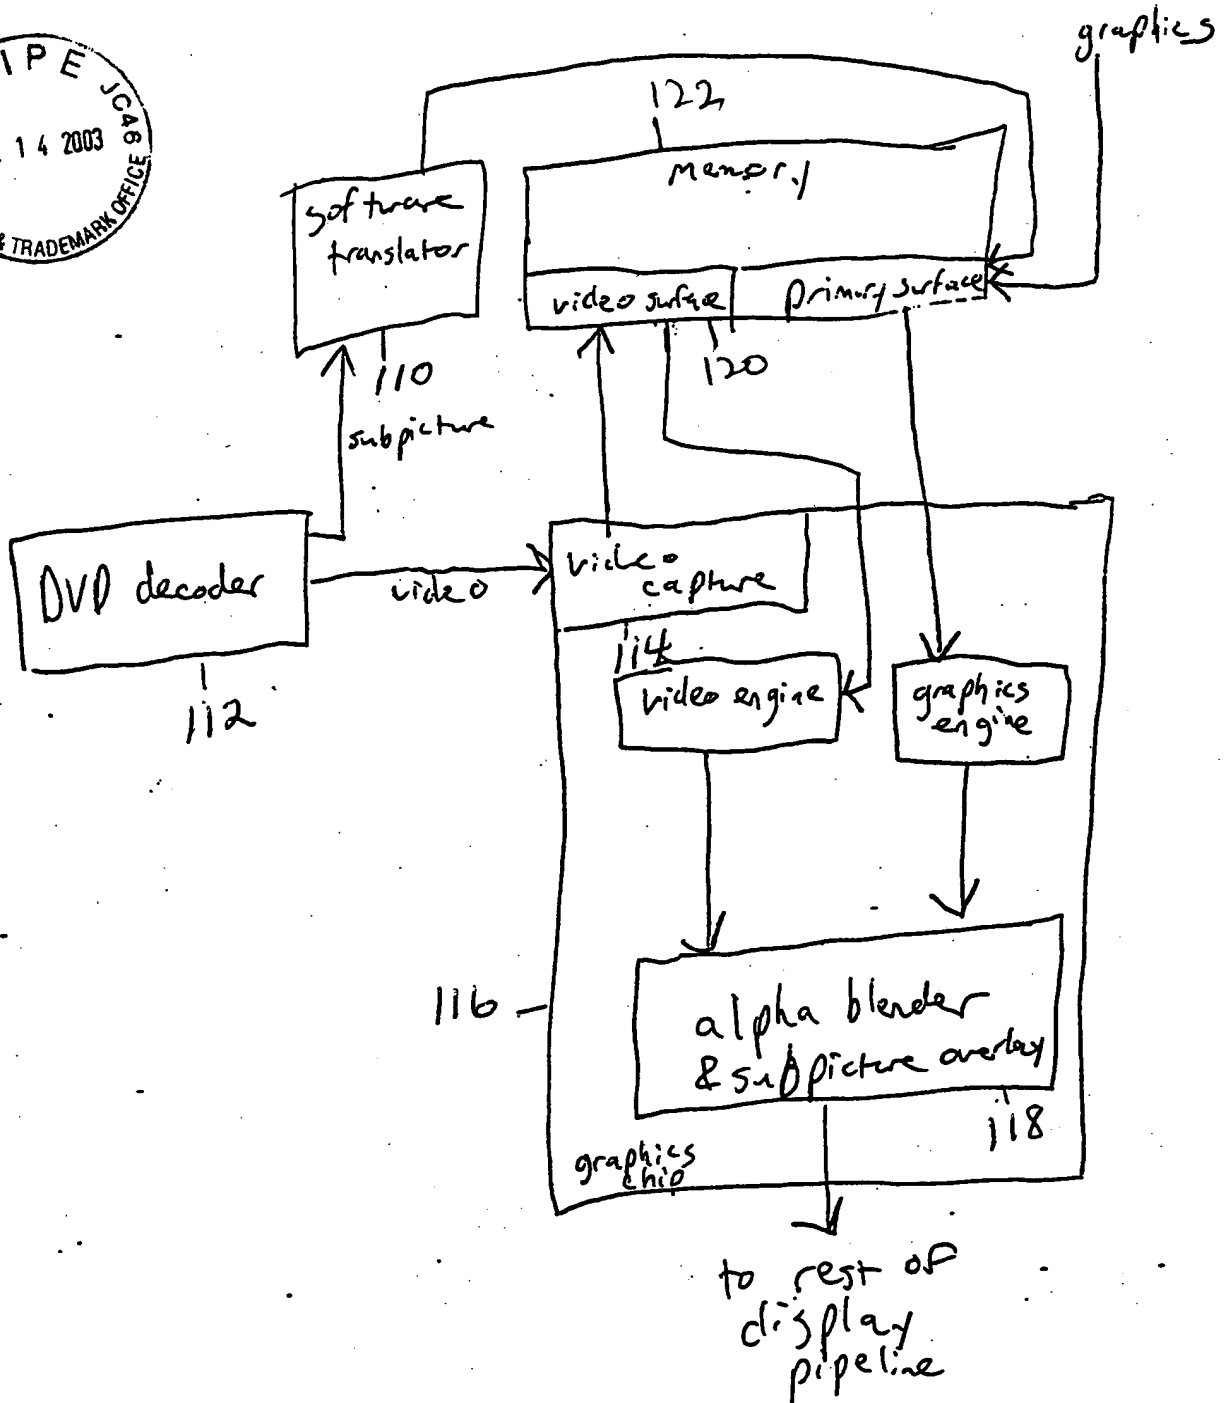 graphics
IPE JC46
14 2003
& TRADEMARK OFFICE
122
memory
software
translator
video surface
primary surface
110
120
subpicture
DVD decoder
112
video
video
capture
114
video engine
graphics
engine
116
alpha blender
& subpicture overlay
118
graphics
chip
to rest of
display
pipeline